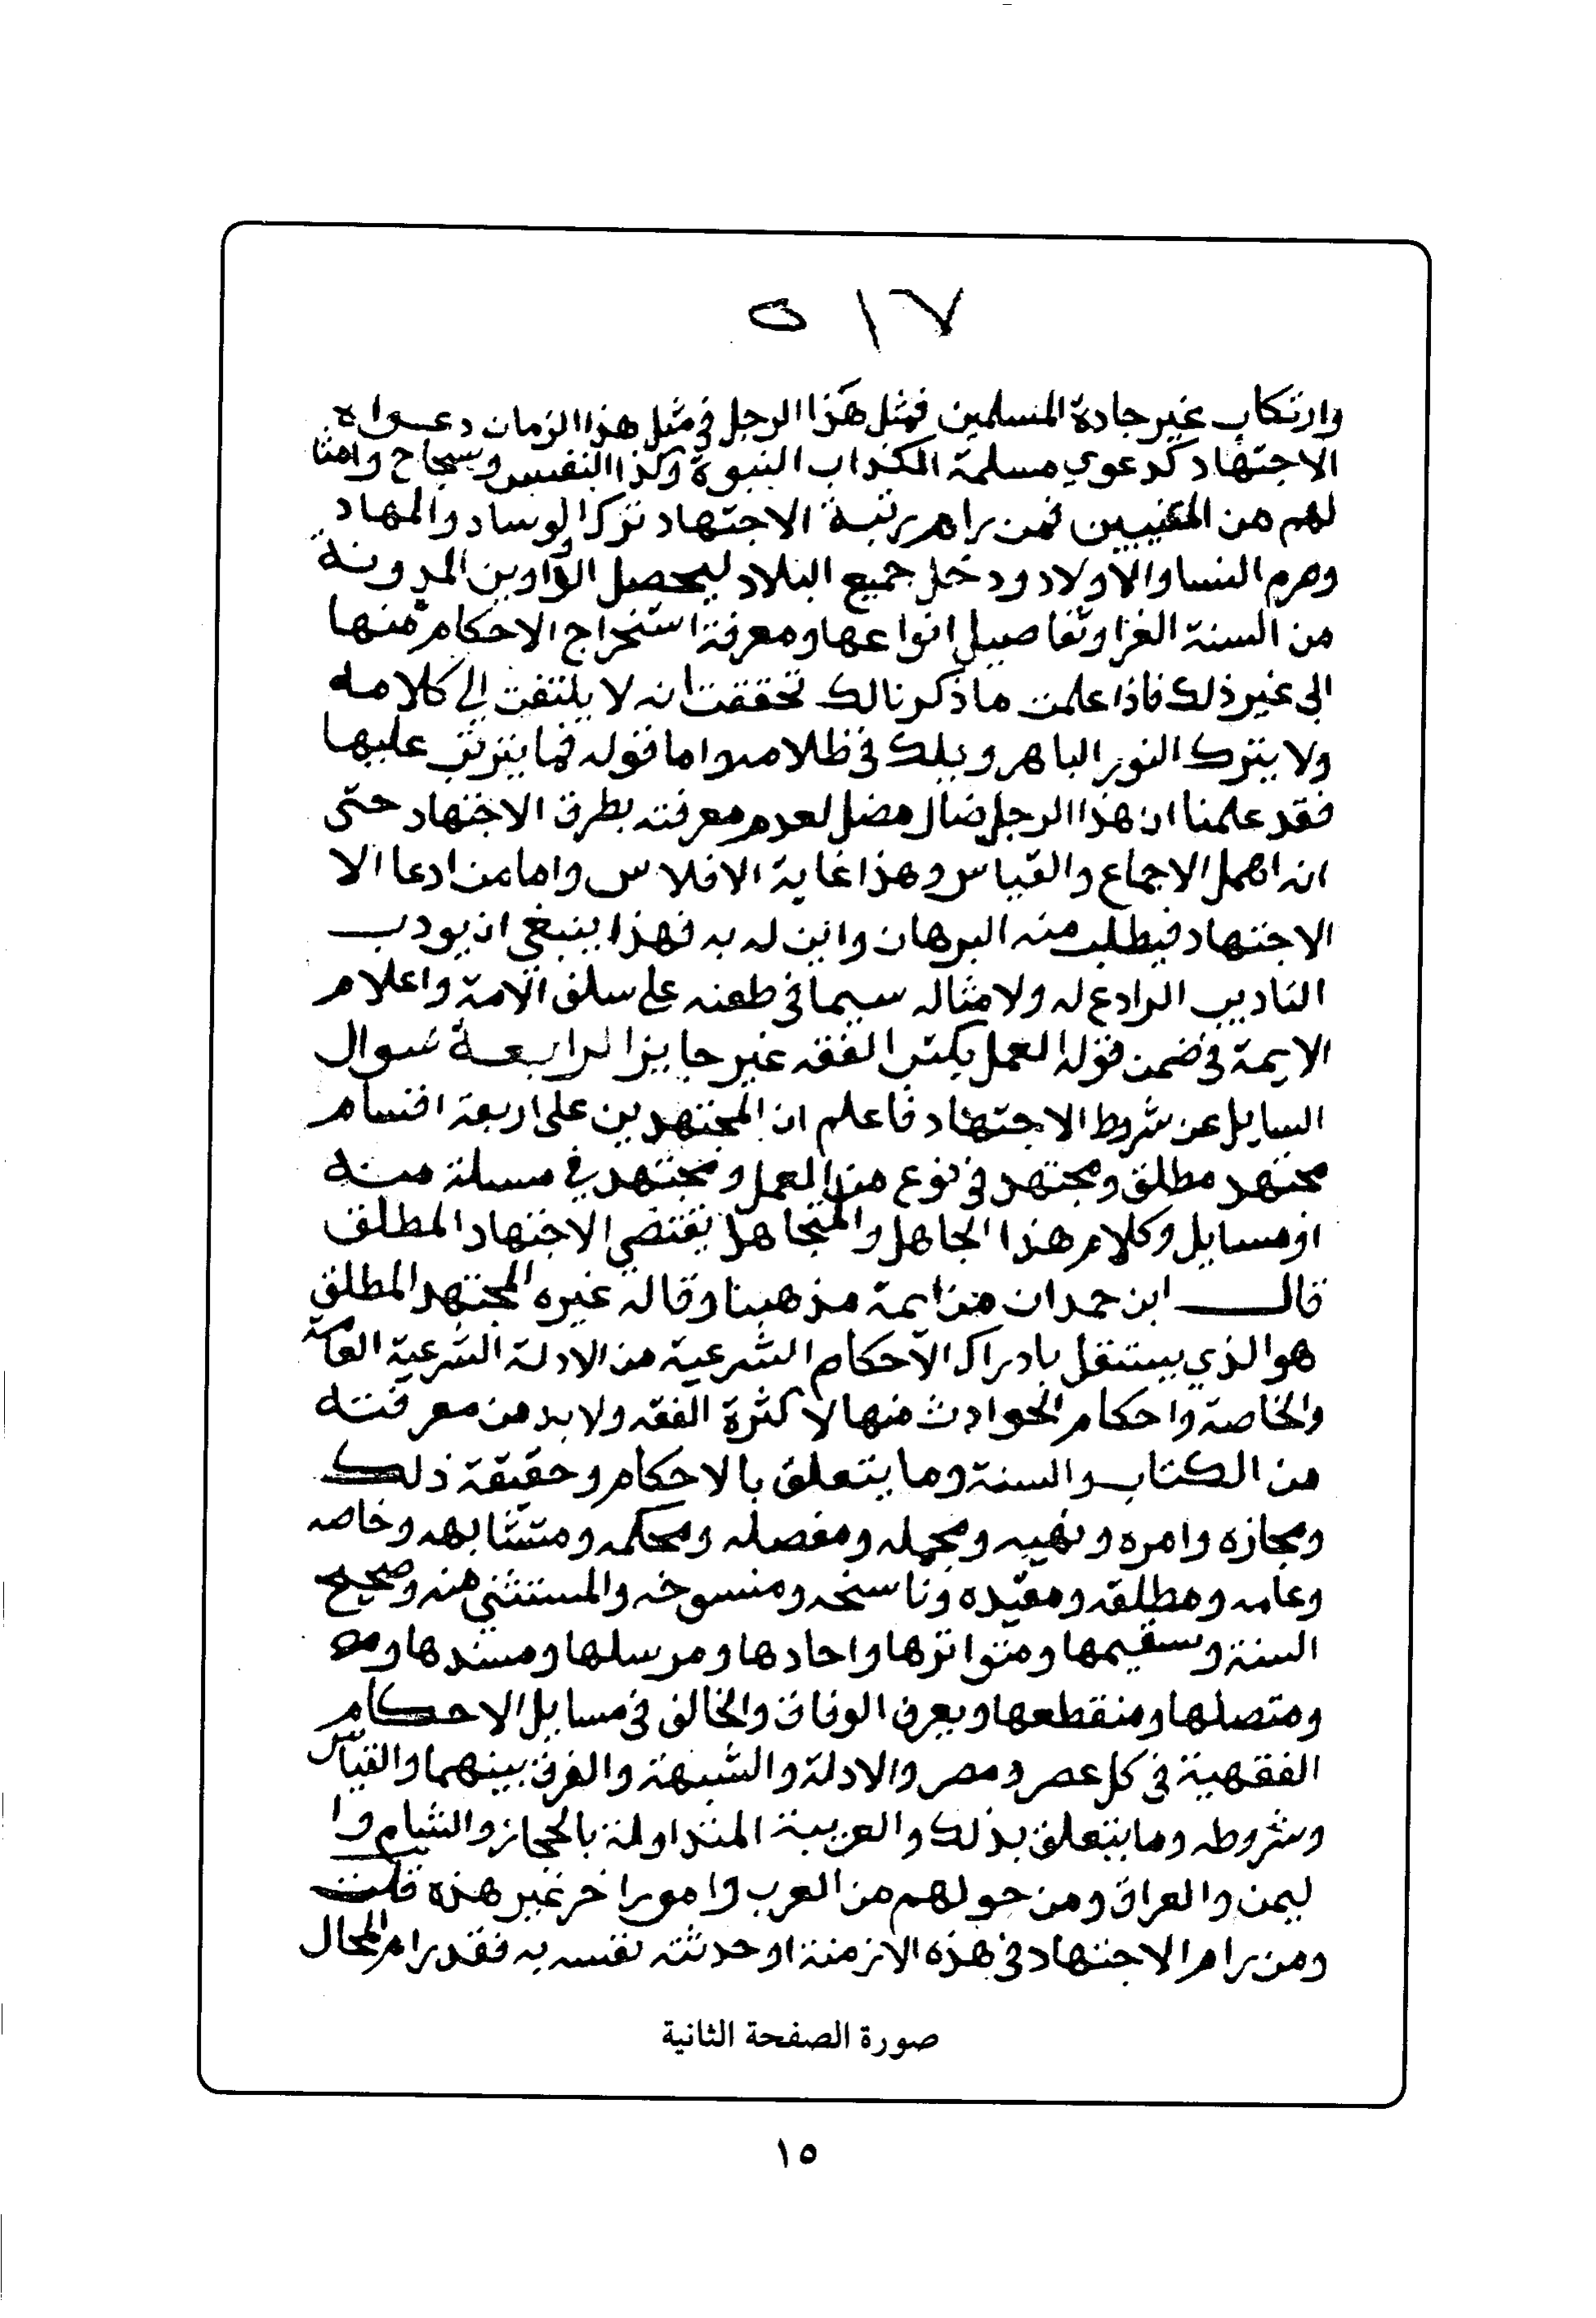 ٥١٧
وارتكاب غير جادة المسلمين فمثل هذا الرجل في مثل هذا الزمان دعواه
الاجتهاد كدعوي مسلمة الكذاب النبوة وكذا النفيس وسجاح وامثا
لهم من المتنبيين فمن رام رتبة الاجتهاد ترك الوساد والمهاد
وهرم النسا والاولاد ودخل جميع البلاد ليحصل الدواوين المدونة
من السنة الغرا وتفاصيل انواعها ومعرفة استخراج الاحكام منها
الى غير ذلك فاذا علمت ما ذكرنا لك تحققت انه لا يلتفت الي كلامه
ولا يترك النور الباهر ويلك في ظلامه واما قوله فما يترتب عليها
فقد علمنا ان هذا الرجل ضال مضل لعدم معرفته بطرق الاجتهاد حتى
انه اهمل الاجماع والقياس وهذا غاية الافلاس واما من ادعا الا
الاجتهاد فيطلب منه البرهان واين له به فهذا ينبغي ان يودب
التاديب الرادع له ولامثاله سيما في طعنه على سلف الامة واعلام
الايمة في ضمن قوله العمل بكتب الفقه غير جايز الرابعة سوال
السايل عن شروط الاجتهاد فاعلم ان المجتهدين على اربعة اقسام
مجتهد مطلق ومجتهد في نوع من العمل ومجتهد في مسلة منه
او مسايل وكلام هذا الجاهل والمتجاهل يقتضي الاجتهاد المطلق
قال ابن حمدان من ايمة مذهبنا وقاله غيره المجتهد المطلق
هو الذي يستقل بادراك الاحكام الشرعية من الادلة الشرعية العامة
والخاصة واحكام الحوادث منها لا كثرة الفقه ولا بد من معرفته
من الكتاب والسنة وما يتعلق بالاحكام وحقيقة ذلك
ومجازه وامره ونهيه ومجمله ومفصله ومحكمه ومتشابهه وخاصه
وعامه ومطلقه ومقيده وناسخه ومنسوخه والمستثني منه وصحيح
السنة وسقيمها ومتواترها واحادها ومرسلها ومسندها ومو
ومتصلها ومنقطعها ويعرف الوفاق والخالف في مسايل الاحكام
الفقهية في كل عصر ومصر والادلة والشبهة والفرق بينهما والقياس
وشروطه وما يتعلق بذلك والعربية المتداولة بالحجاز والشام وا
ليمن والعراق ومن حولهم من العرب وامورا خر غير هذه قلت
ومن رام الاجتهاد في هذه الازمنة او حدثته نفسه به فقد رام المحال
صورة الصفحة الثانية
١٥